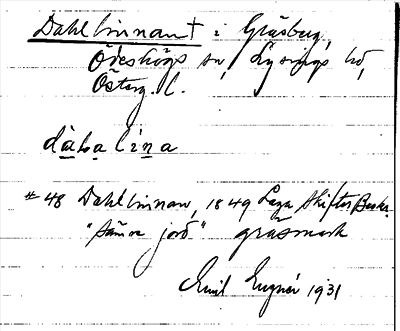 Dahllinnan † i Gräsberg,
Ödeshögs sn, Lysings hd,
Österg. l.
dàḷa lina
# 48 Dahllinnan, 1849 Laga Skiftes Beskr.
"sämre jord" gräsmark
Emil 1931